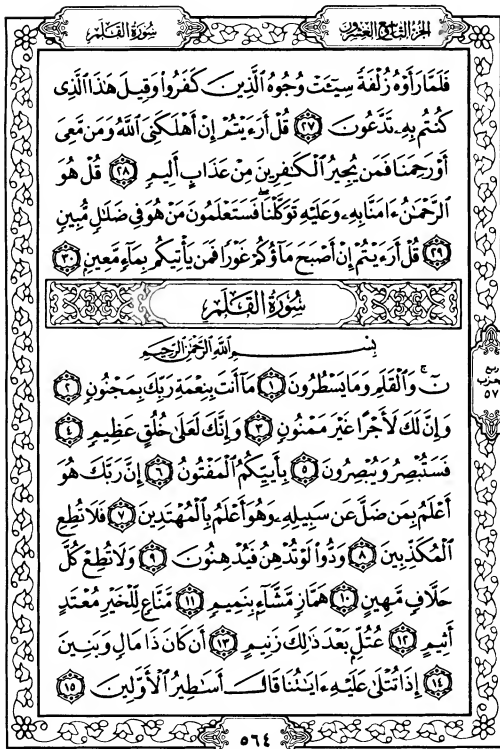 سُورَةُ القَلَمِ
الجزء التاسع والعشرون
فَلَمَّا رَأَوْهُ زُلْفَةً سِيٓـَٔتْ وُجُوهُ ٱلَّذِينَ كَفَرُوا۟ وَقِيلَ هَٰذَا ٱلَّذِى
كُنتُم بِهِۦ تَدَّعُونَ ٢٧ قُلْ أَرَءَيْتُمْ إِنْ أَهْلَكَنِىَ ٱللَّهُ وَمَن مَّعِىَ
أَوْ رَحِمَنَا فَمَن يُجِيرُ ٱلْكَٰفِرِينَ مِنْ عَذَابٍ أَلِيمٍ ٢٨ قُلْ هُوَ
ٱلرَّحْمَٰنُ ءَامَنَّا بِهِۦ وَعَلَيْهِ تَوَكَّلْنَا ۖ فَسَتَعْلَمُونَ مَنْ هُوَ فِى ضَلَٰلٍ مُّبِينٍ
٢٩ قُلْ أَرَءَيْتُمْ إِنْ أَصْبَحَ مَآؤُكُمْ غَوْرًا فَمَن يَأْتِيكُم بِمَآءٍ مَّعِينٍۭ ٣٠
سُورَةُ القَلَمِ
بِسْمِ ٱللَّهِ ٱلرَّحْمَٰنِ ٱلرَّحِيمِ
نٓ ۚ وَٱلْقَلَمِ وَمَا يَسْطُرُونَ ١ مَآ أَنتَ بِنِعْمَةِ رَبِّكَ بِمَجْنُونٍ ٢
وَإِنَّ لَكَ لَأَجْرًا غَيْرَ مَمْنُونٍ ٣ وَإِنَّكَ لَعَلَىٰ خُلُقٍ عَظِيمٍ ٤
فَسَتُبْصِرُ وَيُبْصِرُونَ ٥ بِأَييِّكُمُ ٱلْمَفْتُونُ ٦ إِنَّ رَبَّكَ هُوَ
أَعْلَمُ بِمَن ضَلَّ عَن سَبِيلِهِۦ وَهُوَ أَعْلَمُ بِٱلْمُهْتَدِينَ ٧ فَلَا تُطِعِ
ٱلْمُكَذِّبِينَ ٨ وَدُّوا۟ لَوْ تُدْهِنُ فَيُدْهِنُونَ ٩ وَلَا تُطِعْ كُلَّ
حَلَّافٍ مَّهِينٍ ١٠ هَمَّازٍ مَّشَّآءٍۭ بِنَمِيمٍ ١١ مَّنَّاعٍ لِّلْخَيْرِ مُعْتَدٍ
أَثِيمٍ ١٢ عُتُلٍّۭ بَعْدَ ذَٰلِكَ زَنِيمٍ ١٣ أَن كَانَ ذَا مَالٍ وَبَنِينَ
١٤ إِذَا تُتْلَىٰ عَلَيْهِ ءَايَٰتُنَا قَالَ أَسَٰطِيرُ ٱلْأَوَّلِينَ ١٥
ربع
حزب
٥٧
٥٦٤